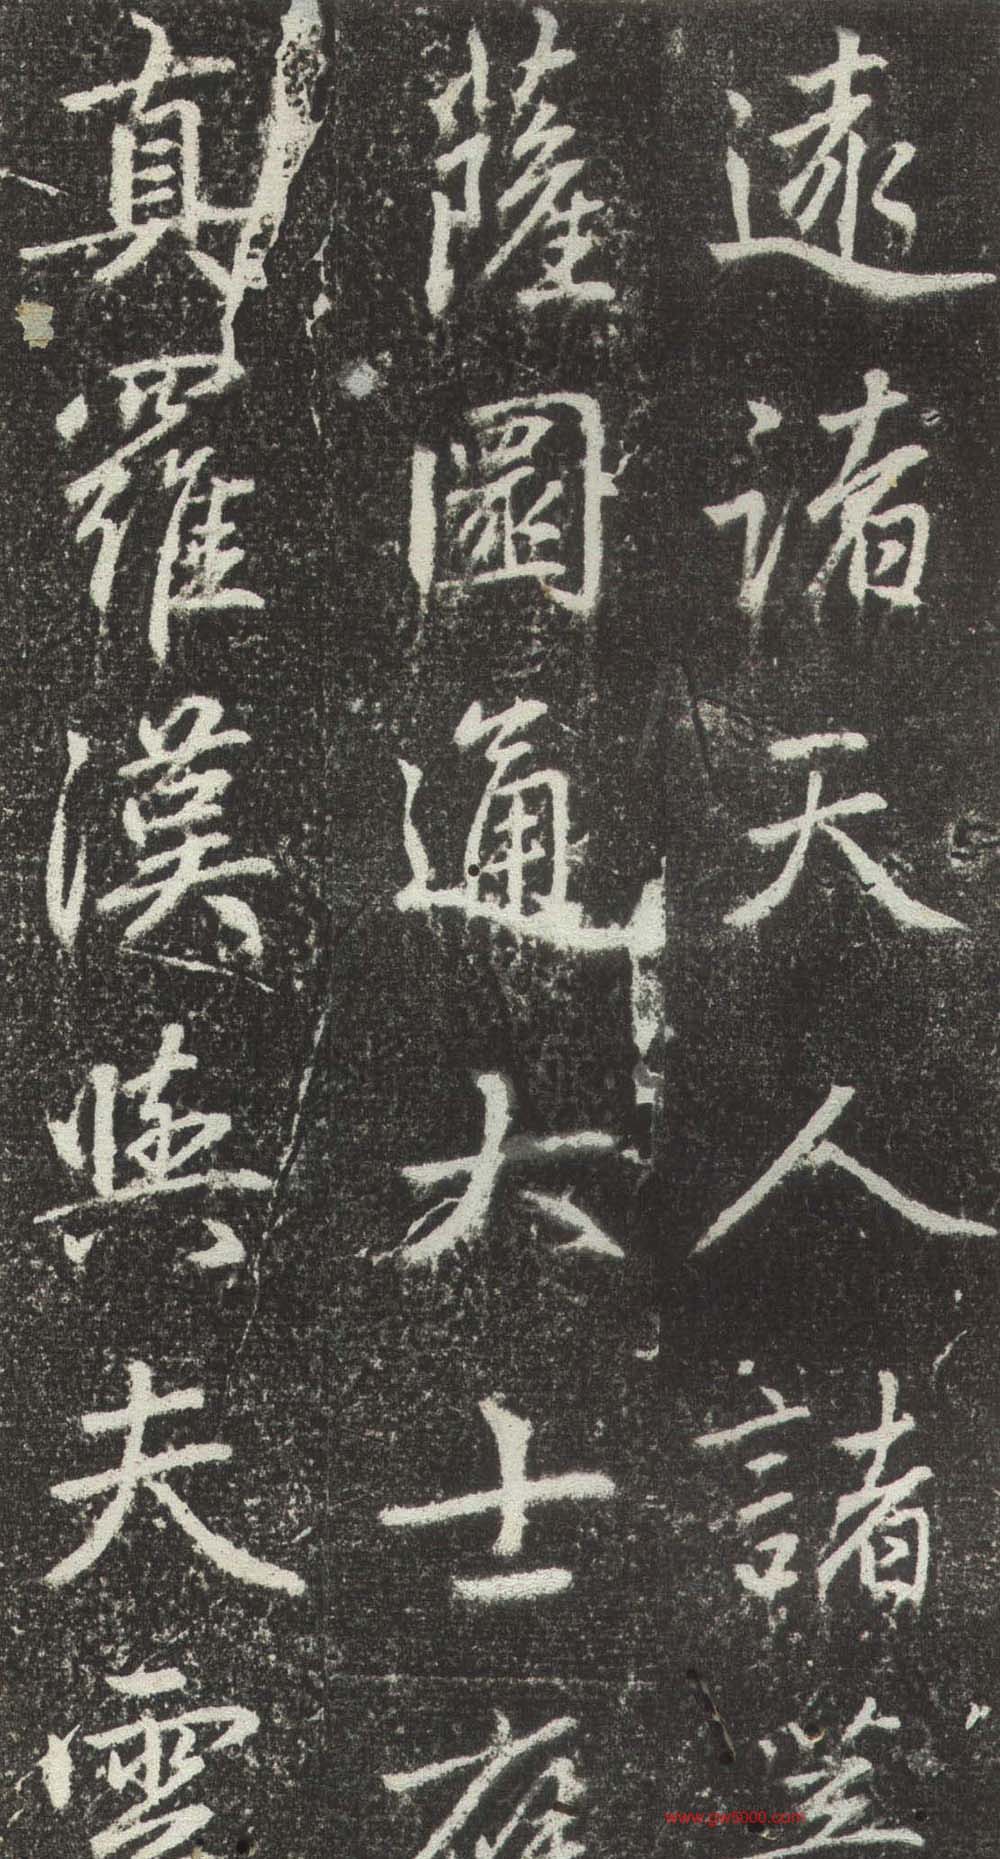 逺諸天人諸菩
薩圓通大士應
真羅漢與夫雲
www.gw5000.com